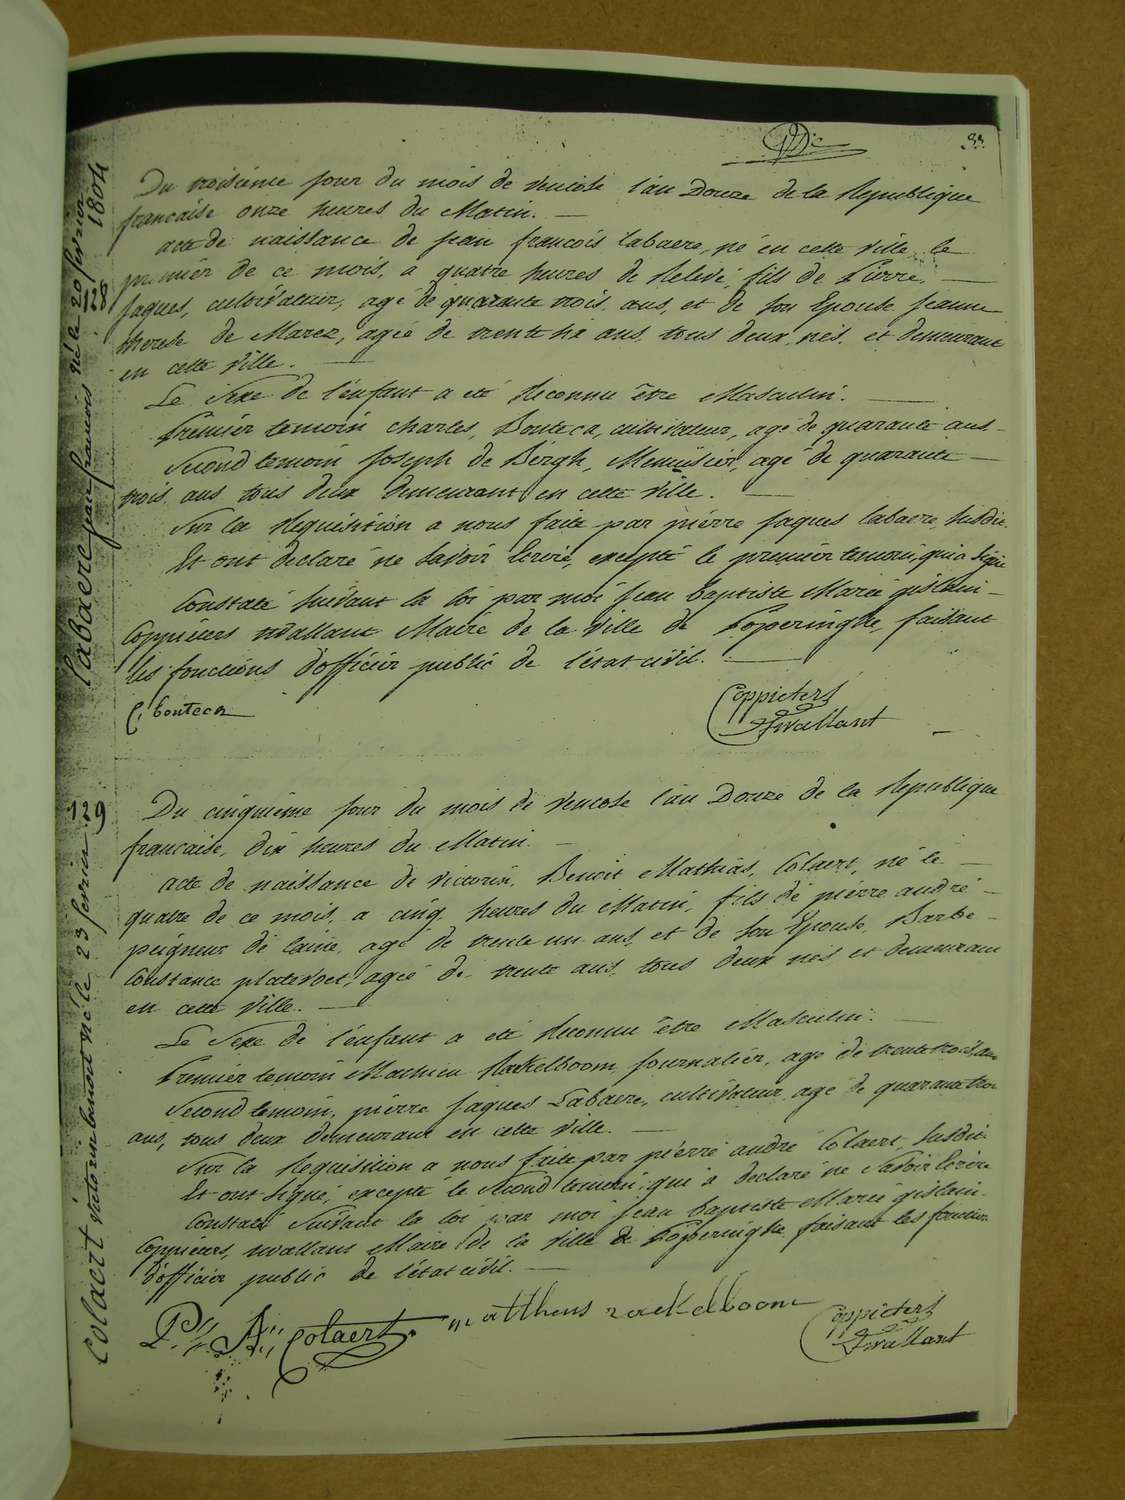 33
Du troisieme jour du mois de ventose l'an Douze de la Republique
francaise onze heures du Matin.
acte de naissance de jean francois labaere, né en cette ville le
premier de ce mois, a quatre heures de Relevé, fils de Pierre
jaques, cultivateur, agé de quarante trois ans, et de son Epouse jeanne
therese de Marez, agée de trent six ans, tous deux nés, et demeurant
en cette ville.
Le Sexe de l'enfant a eté Reconnu être Masculin.
Premier temoin Charles, Bouteca, cultivateur, agé de quarante ans
Second temoin joseph de Bergh, Menuisier, agé de quarante
trois ans tous deux demeurant en cette ville.
Sur la Requisition a nous faite par pierre jaques labaere, susdit
Et ont declaré ne savoir Ecrire, excepté le premier temoin, qui a signé
Constaté suivant la loi par moi jean baptiste Marie gislain
Coppieters wallant Maire de la ville de Poperinghe, faisant
les fonctions d'officier public de l'état civil.
C, bouteca
Coppieters
Twallant
128
labaere jean francois né le 20 fevrier
1804
Du cinquième jour du mois de ventose l'an Douze de la Republique
francaise, dix heures du Matin.
acte de naissance de victorin, Benoit Mathias, Colaert, né le
quatre de ce mois, a cinq heures du Matin, fils de pierre andré
peigneur de laine, agé de trente un ans, et de son Epouse, Barbe
Constance platevoet, agée de trente ans, tous deux nés et demeurant
en cette ville.
Le Sexe de l'enfant a eté Reconnu être Masculin.
Premier temoin Mathieu Rackelboom, journalier, agé de trente trois ans
Second temoin, pierre jaques Labaere, cultivateur agé de quarante trois
ans, tous deux demeurant en cette ville.
Sur la Requisition a nous faite par pierre andré Colaert, susdit
Et ont signé, excepté le Second temoin, qui a declaré ne Savoir Ecrire
Constaté Suivant la loi par moi jean baptiste Marie gislain
Coppieters, wallant Maire de la ville de Poperinghe faisant les fonctions
d'officier public de l'état civil.
P. A. Colaert
matthens rackelboom
Coppieters
Twallant
129
Colaert victorin benoit né le 23 fevrier